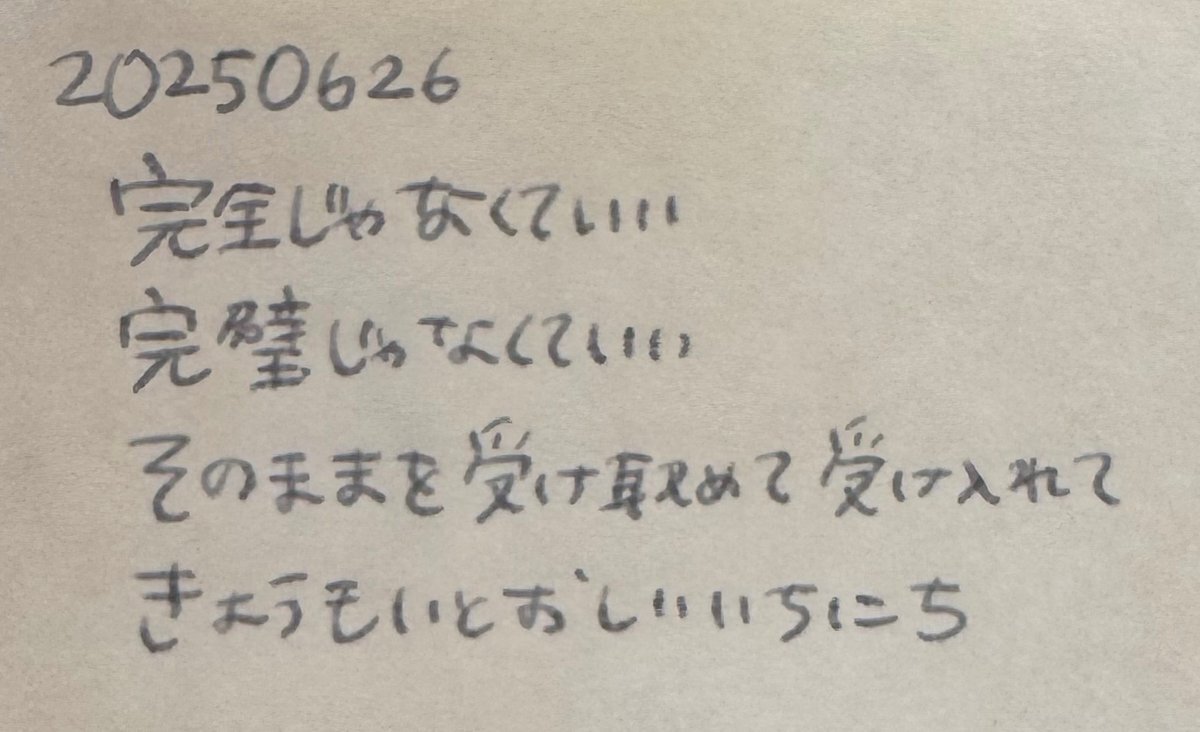 20250626
完全じゃなくていい
完璧じゃなくていい
そのままを受け取めて受け入れて
きょうもいとおしいいちにち